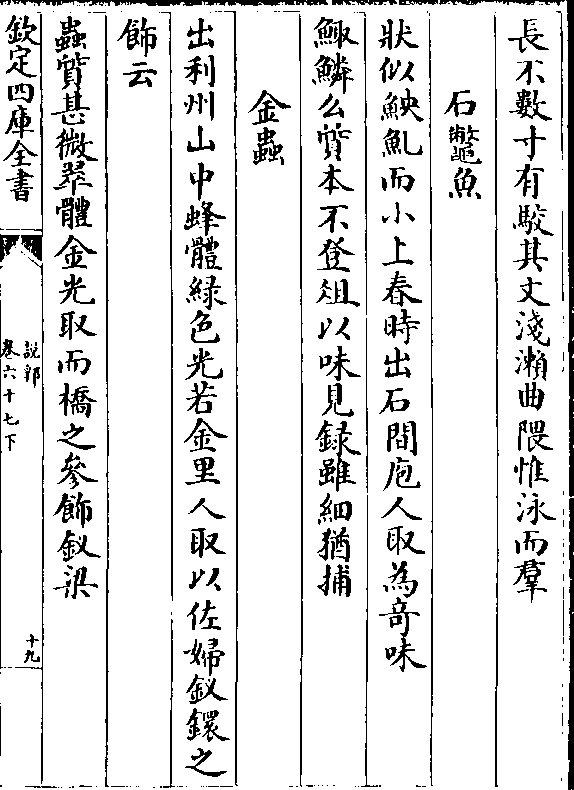 長不數寸有駮其文淺瀨曲隈惟泳而羣
石鼈魚
狀似鮧魤而小上春時出石間庖人取為奇味
鯫鱗么質本不登俎以味見録雖細猶捕
金蟲
出利州山中蜂體緑色光若金里人取以佐婦釵鐶之
飾云
蟲質甚微翠體金光取而橋之參飾釵梁
欽定四庫全書
説郛
卷六十七下
十九